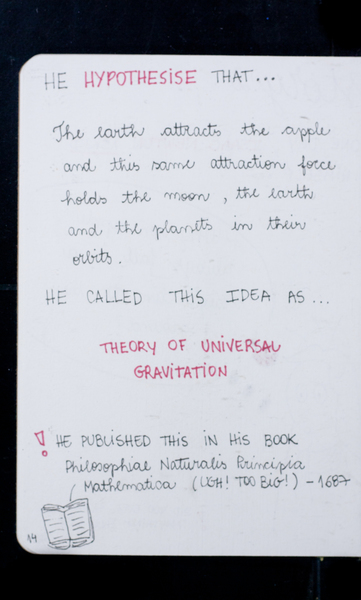 HE HYPOTHESISE THAT...
The earth attracts the apple
and this same attraction force
holds the moon, the earth
and the planets in their
orbits.
HE CALLED THIS IDEA AS...
THEORY OF UNIVERSAL
GRAVITATION
! HE PUBLISHED THIS IN HIS BOOK
Philosophiae Naturalis Principia
Mathematica (UGH! TOO BIG!) - 1687
14